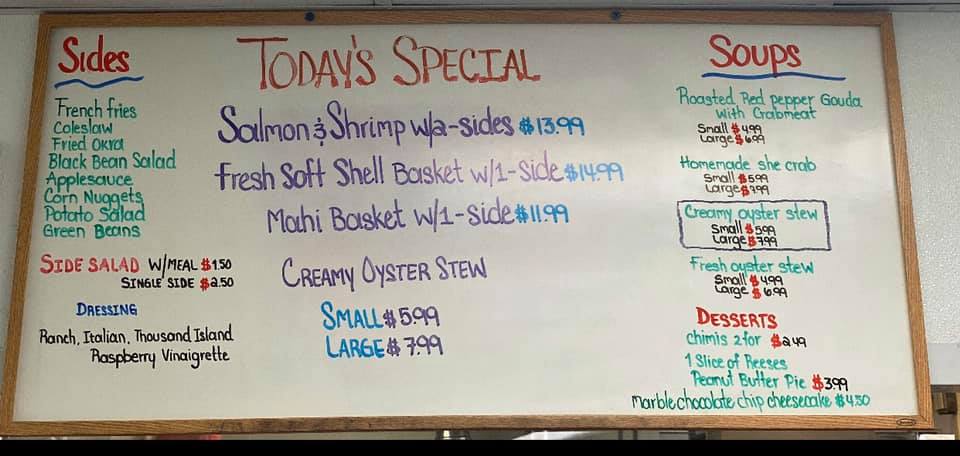 Sides
French fries
Coleslaw
Fried okra
Black Bean Salad
Applesauce
Corn Nuggets
Potato Salad
Green Beans
SIDE SALAD W/MEAL $1.50
SINGLE SIDE $2.50
DRESSING
Ranch, Italian, Thousand Island
Raspberry Vinaigrette
TODAY'S SPECIAL
Salmon & Shrimp w/2-sides $13.99
Fresh Soft Shell Basket w/1-side $14.99
Mahi Basket w/1-side $11.99
CREAMY OYSTER STEW
SMALL $5.99
LARGE $7.99
Soups
Roasted Red pepper Gouda
with Crabmeat
Small $4.99
Large $6.99
Homemade she crab
Small $5.99
Large $7.99
Creamy oyster stew
Small $5.99
Large $7.99
Fresh oyster stew
Small $4.99
Large $6.99
DESSERTS
chimis 2 for $2.49
1 Slice of Reeses
Peanut Butter Pie $3.99
marble chocolate chip cheesecake $4.50